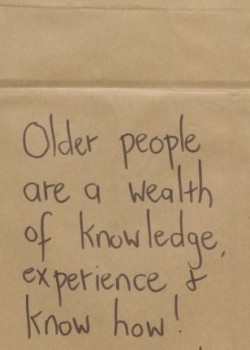 Older people
are a wealth
of knowledge,
experience &
know how!